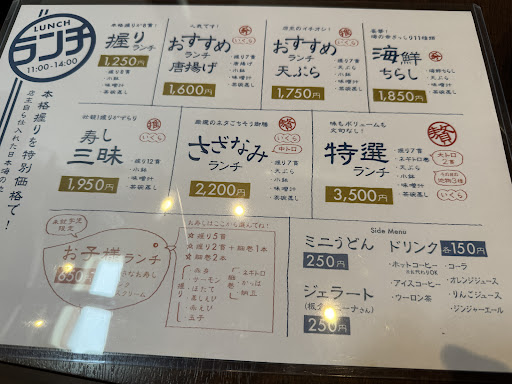 LUNCH
ランチ
11:00-14:00
本格握りを特別価格で!
本格握り8貫!
握り
ランチ
1,250円
・握り8貫
・小鉢
・味噌汁
・茶碗蒸し
人気です!
おすすめ
ランチ
唐揚げ
1,600円
いくら
・握り7貫
・唐揚げ
・小鉢
・味噌汁
・茶碗蒸し
店主のイチオシ!
おすすめ
ランチ
天ぷら
1,750円
いくら
・握り7貫
・天ぷら
・小鉢
・味噌汁
・茶碗蒸し
海鮮
ちらし
1,850円
・海鮮ちらし
・天ぷら
・味噌汁
・茶碗蒸し
壮観!握りずらり
寿し
三昧
1,950円
いくら
・握り12貫
・小鉢
・味噌汁
・茶碗蒸し
厳選のネタごちそう御膳
さざなみ
ランチ
2,200円
贅
いくら
中トロ
・握り7貫
・天ぷら
・小鉢
・味噌汁
・茶碗蒸し
味もボリュームも
文句なし!
特選
ランチ
3,500円
贅
大トロ
2貫
いくら
・握り7貫
・ネギトロ巻
・天ぷら
・小鉢
・味噌汁
・茶碗蒸し
限定
お子様ランチ
お寿しはここから選んでね!
☆握り5貫
☆握り2貫+細巻1本
☆細巻2本
握り
・サーモン
・ほたて
・蒸しえび
・赤えび
・玉子
細巻
・ネギトロ
・かっぱ
・納豆
Side Menu
ミニうどん
250円
ジェラート
250円
ドリンク 各150円
・ホットコーヒー
・アイスコーヒー
・ウーロン茶
・コーラ
・オレンジジュース
・りんごジュース
・ジンジャーエール